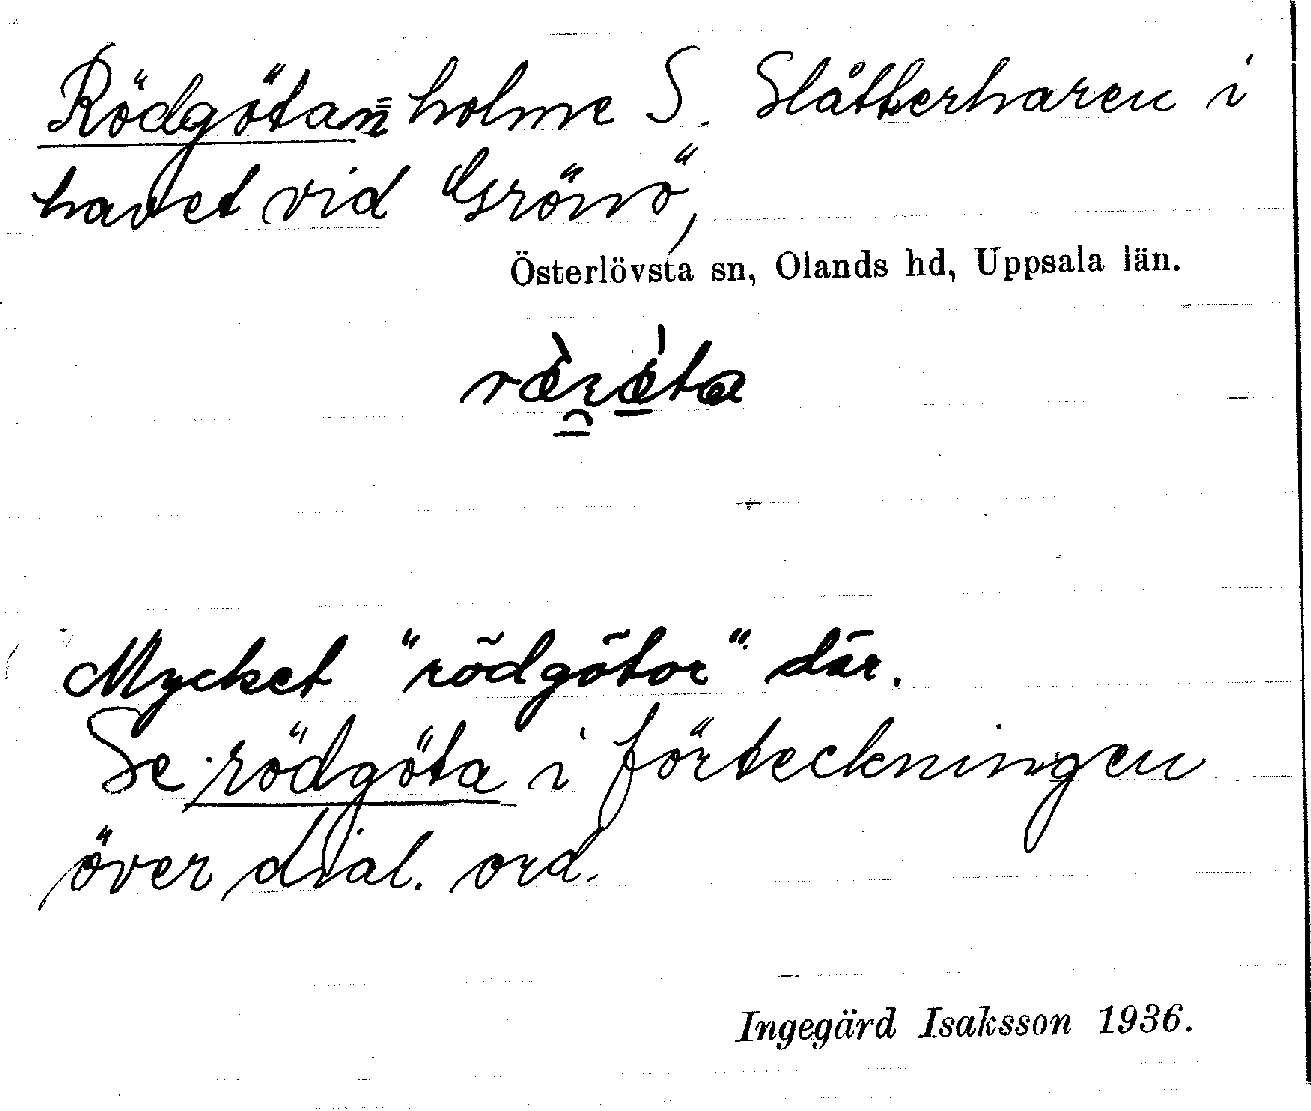 Rödgötan= holme S. Slåtterharen i
havet vid Grönö,
Österlövsta sn, Olands hd, Uppsala län.
Mycket "rödgötor" där.
Se rödgöta i förteckningen
över dial. ord.
Ingegärd Isaksson 1936.